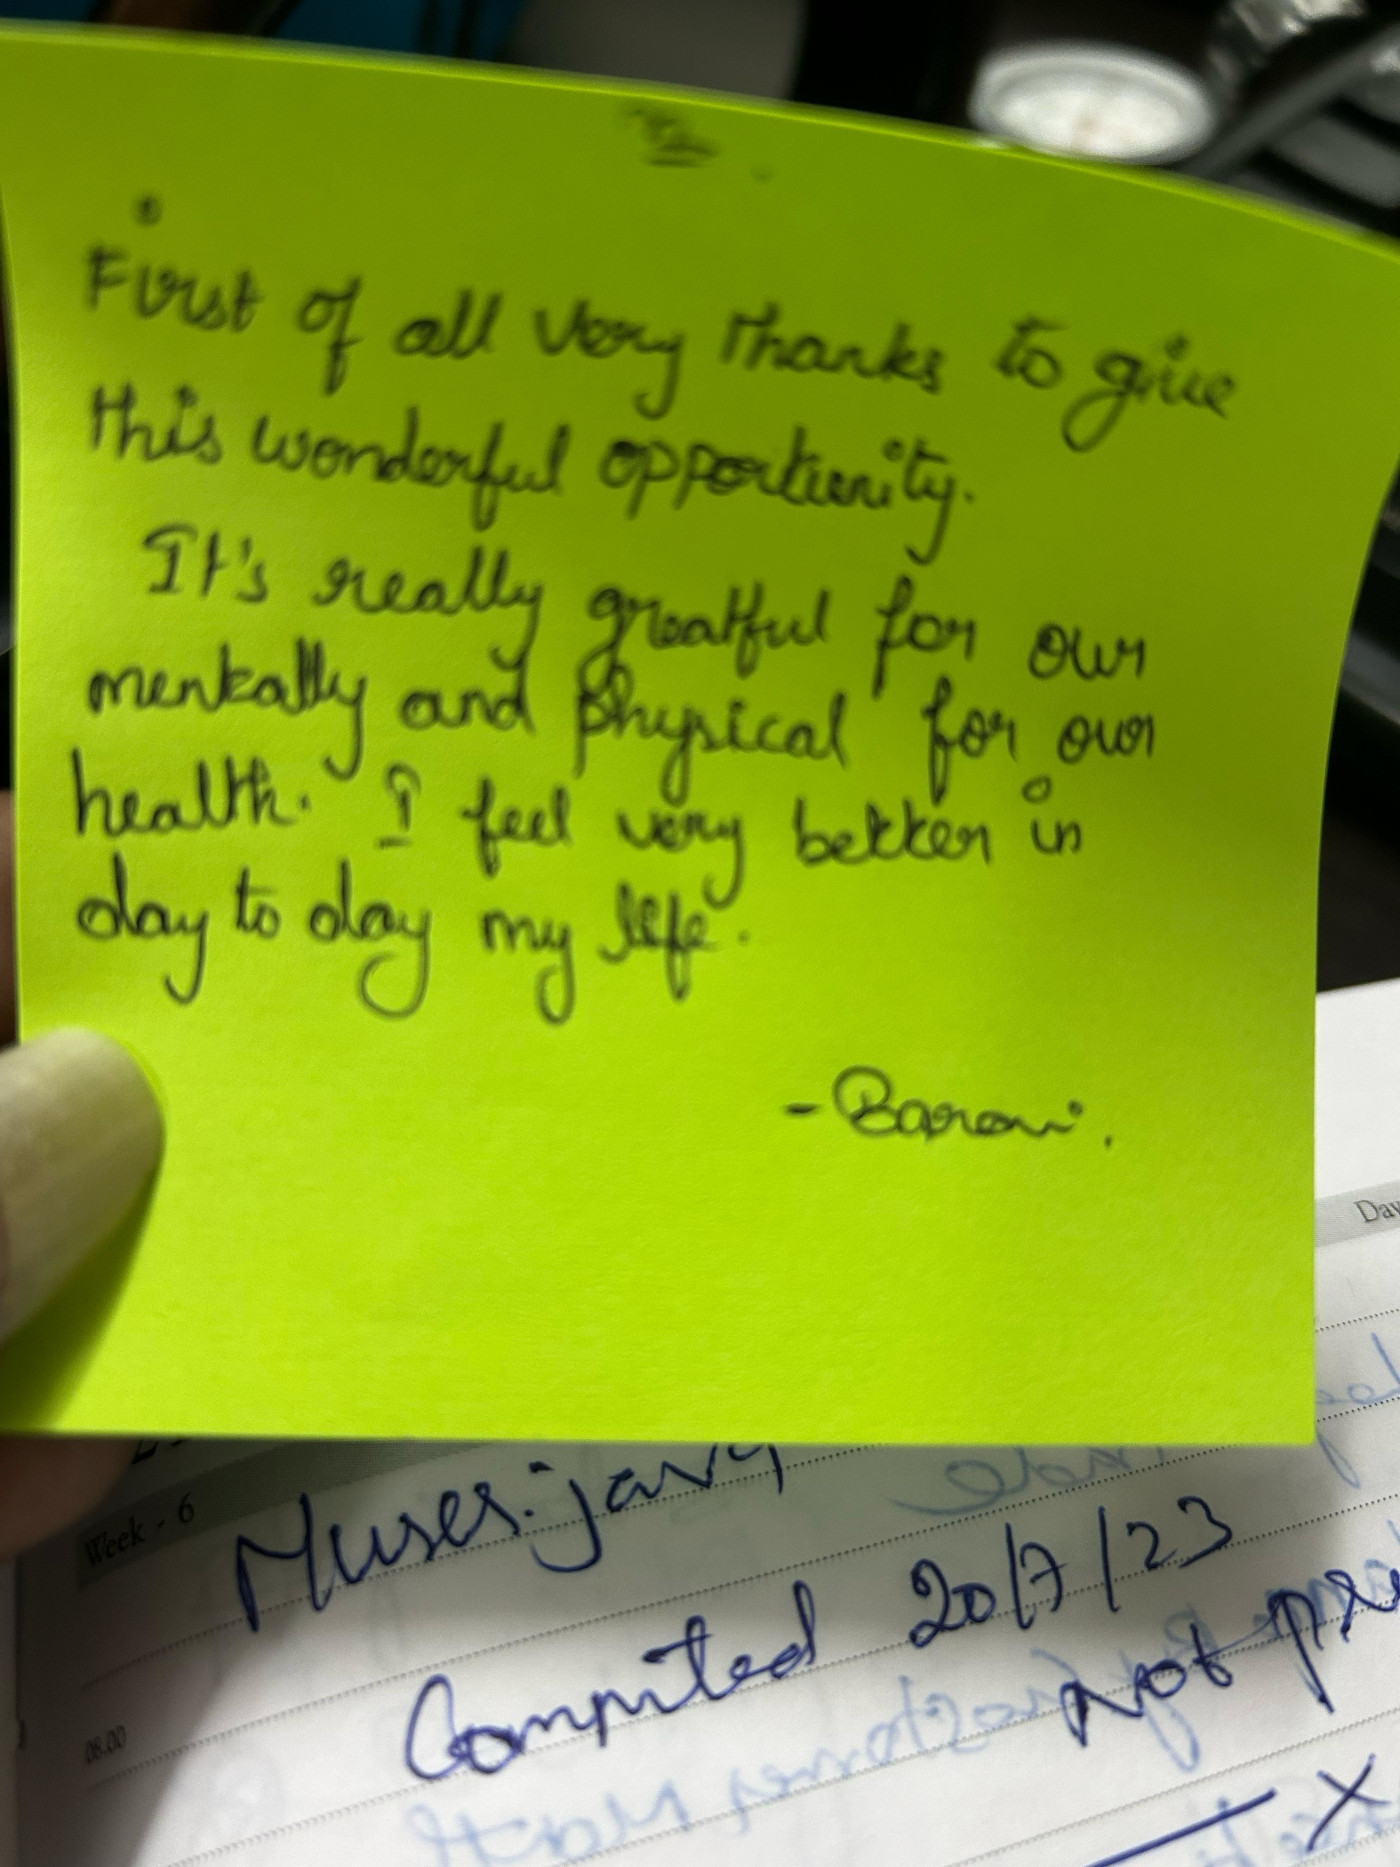 First of all very thanks to give
this wonderful opportunity.
It's really greatful for our
mentally and physical for our
health. I feel very better in
day to day my life.
- Barani.
Week - 6
08.00
Computed 20/7/23
Not
X